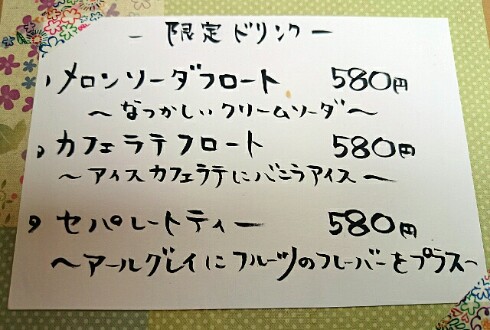 － 限定ドリンク －
、メロンソーダフロート 580円
～なつかしいクリームソーダ～
、カフェラテフロート 580円
～アイスカフェラテにバニラアイス～
、セパレートティー 580円
～アールグレイにフルーツのフレーバーをプラス～